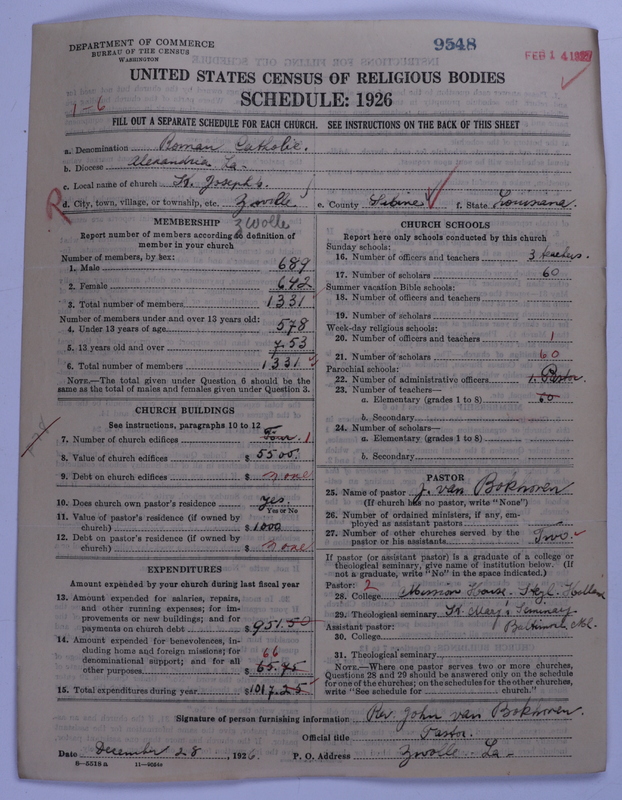 DEPARTMENT OF COMMERCE
BUREAU OF THE CENSUS
WASHINGTON
9548
FEB 14 1927
UNITED STATES CENSUS OF RELIGIOUS BODIES
SCHEDULE: 1926
1-6
FILL OUT A SEPARATE SCHEDULE FOR EACH CHURCH. SEE INSTRUCTIONS ON THE BACK OF THIS SHEET
a. Denomination Roman Catholic.
b. Diocese Alexandria La-
c. Local name of church St. Joseph's
R
d. City, town, village, or township, etc. Zwolle e. County Sabine f. State Louisiana.
Zwolle
MEMBERSHIP
Report number of members according to definition of member in your church
Number of members, by sex:
1. Male 689
2. Female 642
3. Total number of members 1331
Number of members under and over 13 years old:
4. Under 13 years of age 578
5. 13 years old and over 753
6. Total number of members 1331
NOTE.—The total given under Question 6 should be the same as the total of males and females given under Question 3.
CHURCH BUILDINGS
See instructions, paragraphs 10 to 12
7. Number of church edifices Four 1
8. Value of church edifices $ 5500
9. Debt on church edifices $ none
10. Does church own pastor's residence yes.
Yes or No
11. Value of pastor's residence (if owned by church) $ 1000
12. Debt on pastor's residence (if owned by church) $ none
EXPENDITURES
Amount expended by your church during last fiscal year
13. Amount expended for salaries, repairs, and other running expenses; for improvements or new buildings; and for payments on church debt $ 951.50
14. Amount expended for benevolences, including home and foreign missions; for denominational support; and for all other purposes $ 65.75
66
15. Total expenditures during year $ 1017.25
CHURCH SCHOOLS
Report here only schools conducted by this church
Sunday schools:
16. Number of officers and teachers 3 teachers.
17. Number of scholars 60
Summer vacation Bible schools:
18. Number of officers and teachers
19. Number of scholars
Week-day religious schools:
20. Number of officers and teachers 1
21. Number of scholars 60
Parochial schools:
22. Number of administrative officers 1. Pastor.
23. Number of teachers—
a. Elementary (grades 1 to 8) 60
b. Secondary
24. Number of scholars—
a. Elementary (grades 1 to 8)
b. Secondary
PASTOR
25. Name of pastor J. van Bokhoven
(If church has no pastor, write "None")
26. Number of ordained ministers, if any, employed as assistant pastors
27. Number of other churches served by the pastor or his assistants Two.
If pastor (or assistant pastor) is a graduate of a college or theological seminary, give name of institution below. (If not a graduate, write "No" in the space indicated.)
Pastor: 2
28. College Mission House. Steyl. Holland
29. Theological seminary St. Mary's Seminary.
Assistant pastor: Baltimore, Md.
30. College
31. Theological seminary
NOTE.—Where one pastor serves two or more churches, Questions 28 and 29 should be answered only on the schedule for one of the churches; on the schedules for the other churches, write "See schedule for church."
Signature of person furnishing information Rev. John van Bokhoven.
Official title Pastor.
Date December 28, 1926. P. O. Address Zwolle. La-
8-5518 a